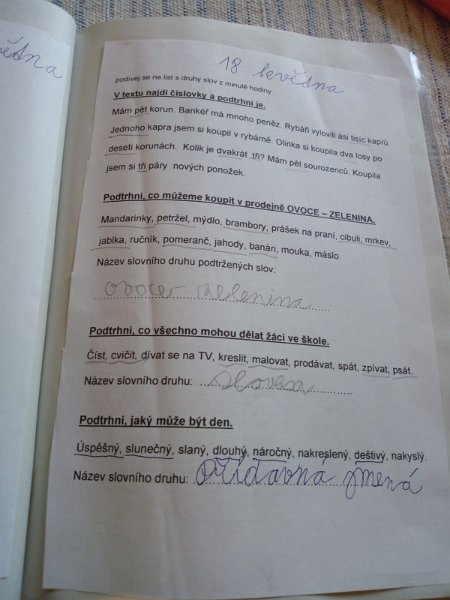 května
18. května
podívej se na list s druhy slov z minulé hodiny
V textu najdi číslovky a podtrhni je.
Mám pět korun. Bankéř má mnoho peněz. Rybáři vylovili asi tisíc kaprů.
Jednoho kapra jsem si koupil v rybárně. Olinka si koupila dva losy po
deseti korunách. Kolik je dvakrát tři? Mám pět sourozenců. Koupila
jsem si tři páry nových ponožek.
Podtrhni, co můžeme koupit v prodejně OVOCE – ZELENINA.
Mandarinky, petržel, mýdlo, brambory, prášek na praní, cibuli, mrkev,
jablka, ručník, pomeranč, jahody, banán, mouka, máslo.
Název slovního druhu podtržených slov:
ovoce - zelenina
Podtrhni, co všechno mohou dělat žáci ve škole.
Číst, cvičit, dívat se na TV, kreslit, malovat, prodávat, spát, zpívat, psát.
Název slovního druhu: slovesa
Podtrhni, jaký může být den.
Úspěšný, slunečný, slaný, dlouhý, náročný, nakreslený, deštivý, nakyslý.
Název slovního druhu: přídavná jmená